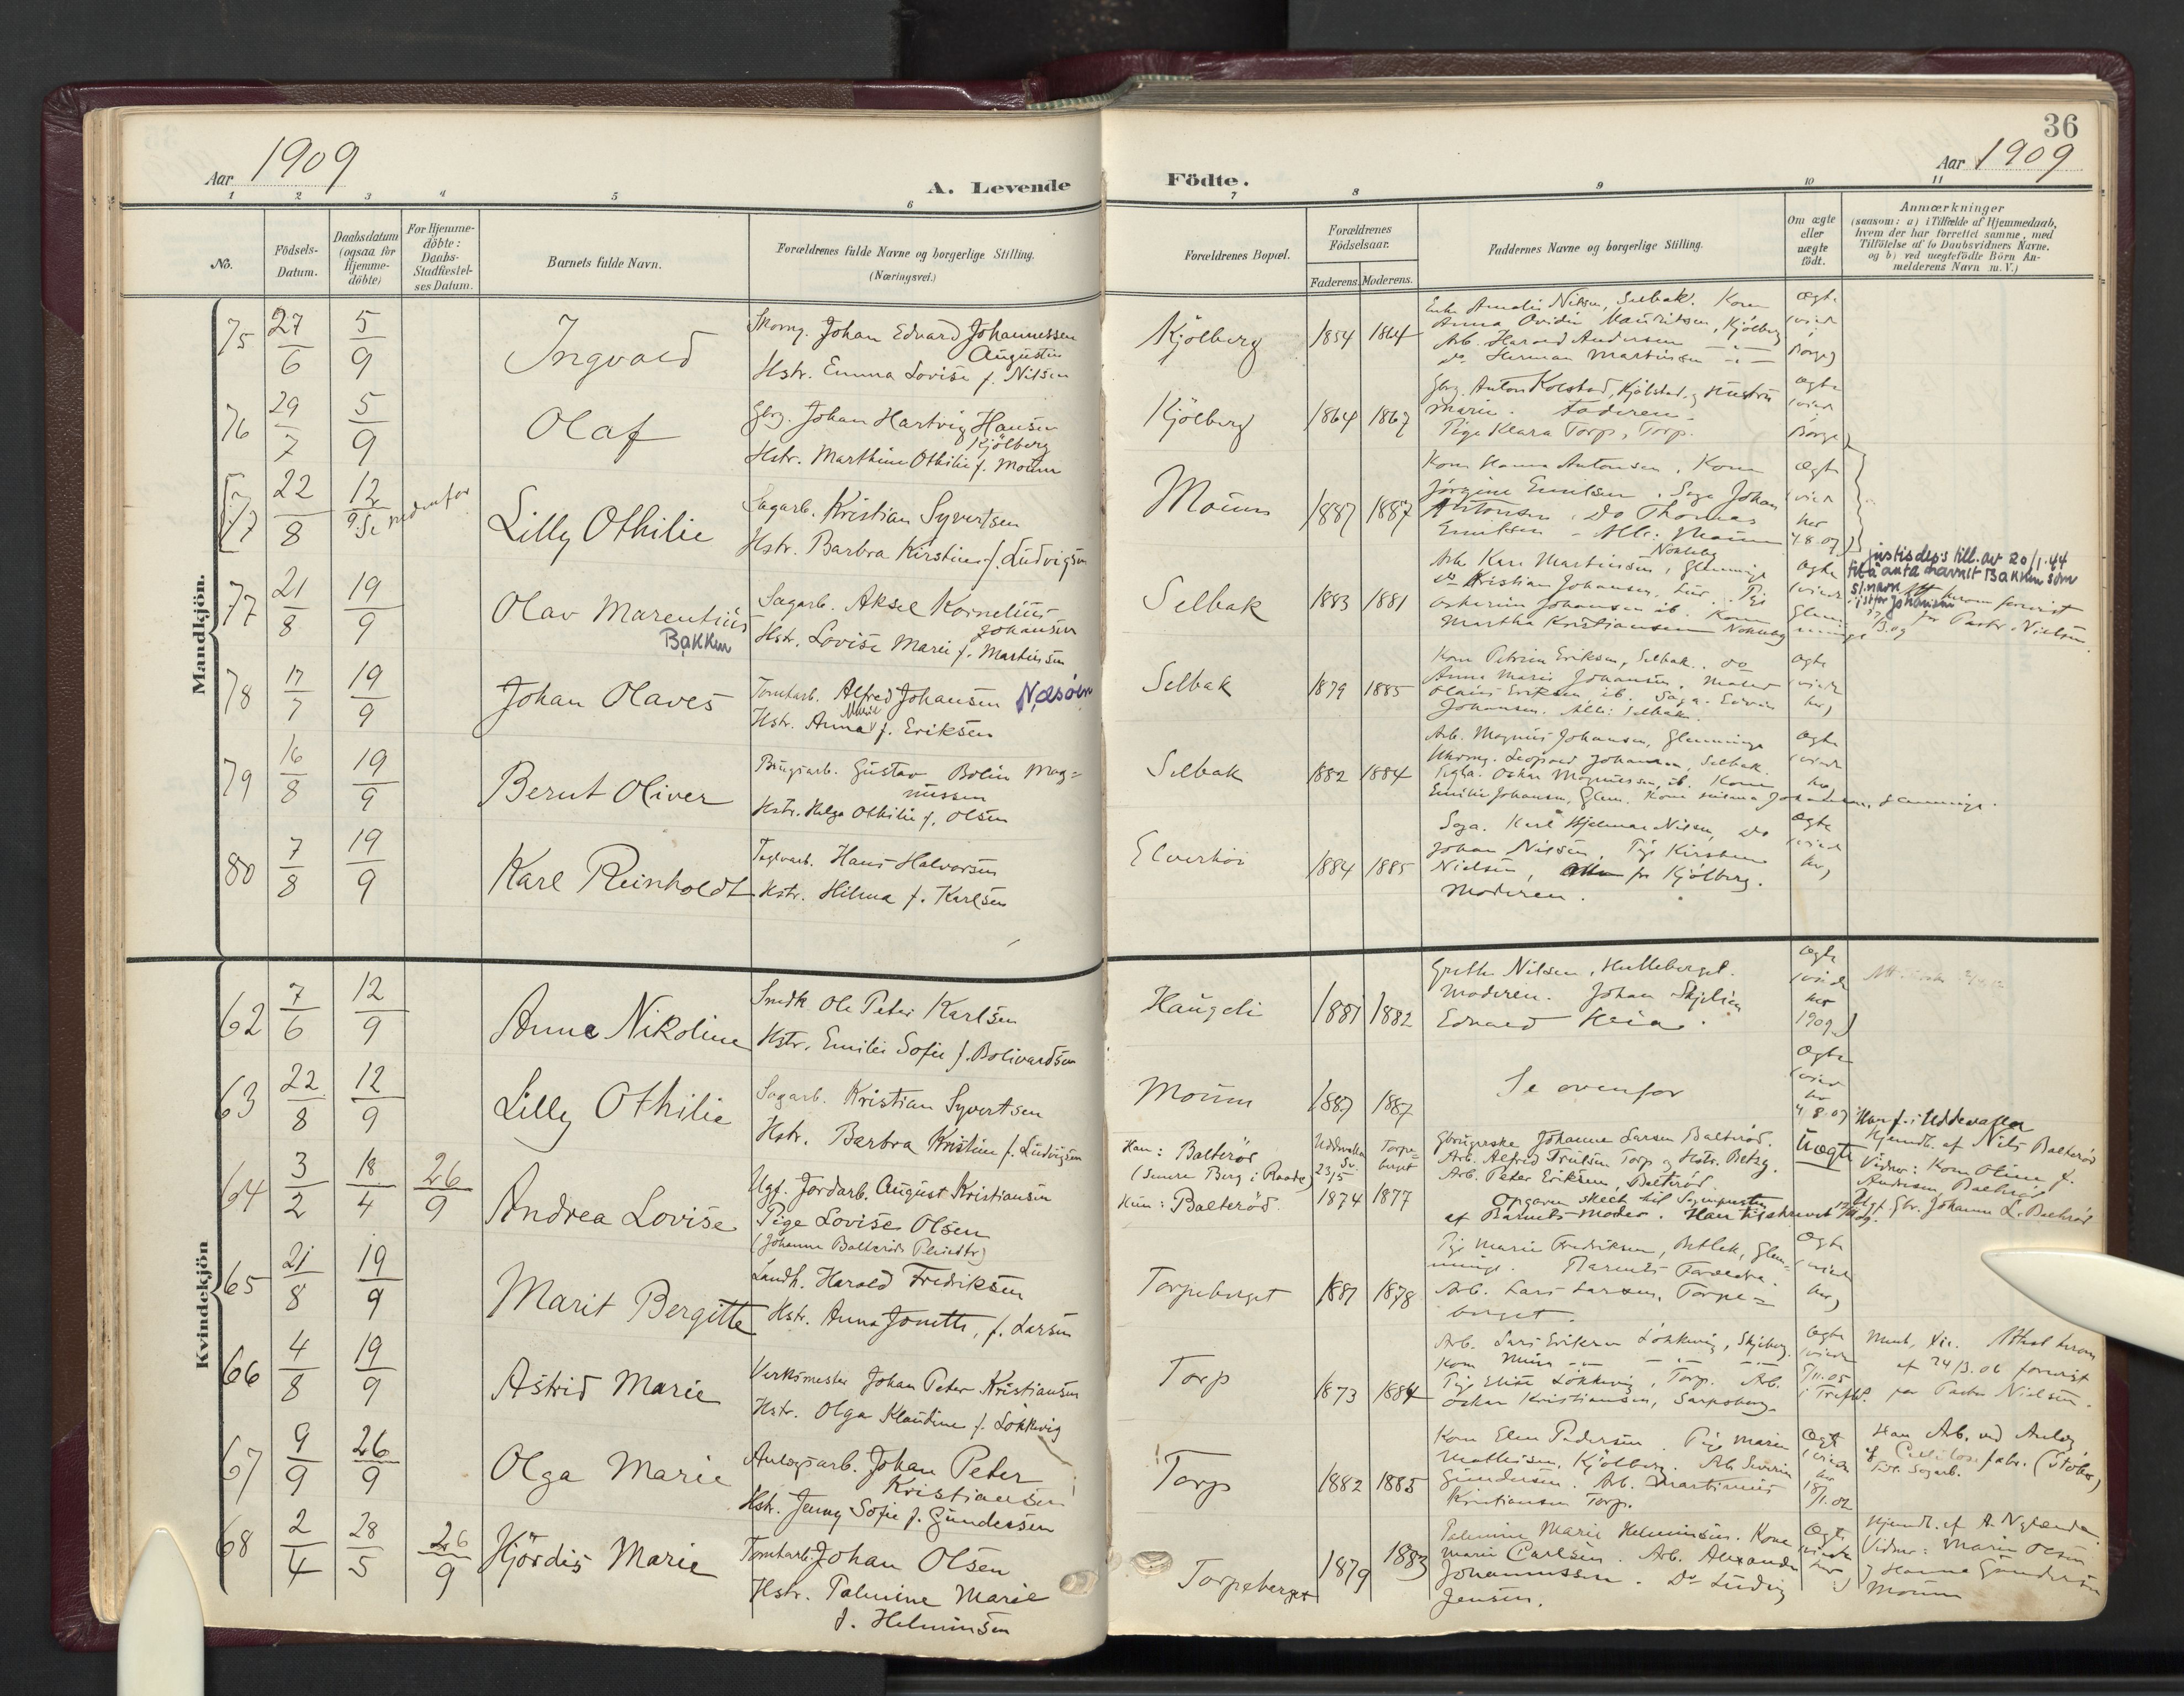 36
Aar 1909
A. Levende Födte.
Aar 1909
1 2 3 4 5 6 7 8 9 10 11
No.
Födsels-Datum.
Daabsdatum (ogsaa for Hjemme-döbte)
For Hjemme-döbte: Daabs-Stadfæstel-ses Datum.
Barnets fulde Navn.
Forældrenes fulde Navne og borgerlige Stilling. (Næringsvei.)
Forældrenes Bopæl.
Forældrenes Födselsaar.
Faderens. Moderens.
Faddernes Navne og borgerlige Stilling.
Om ægte eller uægte födt.
Anmærkninger
(saasom: a) i Tilfælde af Hjemmedaab,
hvem der har forrettet samme, med
Tilföielse af to Daabsvidners Navne,
og b) ved uægtefödte Börn An-
melderens Navn m. V.)
Mandkjön.
75 27/6 5/9 Ingvald
Skomg. Johan Edvard Johannessen
Augustin
Hstr. Emma Lovise f. Nilsen
Kjölberg 1854 1864
Enke Amalie Nilsen, Selbak. Kone
Anna Ovidie Mauritsen, Kjölberg
Arb. Harald Andersen
do. Herman Martinsen
Ægte
(viede
Borge)
76 29/7 5/9 Olaf
Gbrg. Johan Hartvig Hansen
Kjölberg
Hstr. Marthine Othilie f. Moum
Kjölberg 1864 1867
Gbrg. Anton Kolstad, Kjölstad, og Hustru
Marie. Faderen.
Pige Klara Torp, Torp.
Ægte
(viede
Borge)
[77 22/8 12/9 Se nedenfor
Lilly Othilie
Sagarb. Kristian Syvertsen
Hstr. Barbra Kirstine f. Ludvigsen
Moum 1887 1887
Kone Hanna Antonsen, Kone
Jörgine Emilsen. Saga. Johan
Antonsen. Do Thomas
Emilsen. Alle: Moum
Ægte
(viede
her
4.8.07)
77 21/8 19/9 Olav Marentius
Bakken
Sagarb. Aksel Kornelius
Johansen
Hstr. Lovise Marie f. Martinsen
Selbak 1883 1881
Arb. Karl Martinsen, Glemminge
do Kristian Johansen, Pige
Johansen ib. Kone
Martha Kristiansen
Ægte
(viede
Glem-
minge
justisdep:s till. av 20/1.44
til å anta navnet Bakken som
sl.navn
istfor Johansen
for Pastor Nielsen
78 17/7 19/9 Johan Olaves
Tomtarb. Alfred Johansen Næsöen
Hstr. Anna Marie f. Eriksen
Selbak 1879 1885
Kone Petrine Eriksen, Selbak. do
Anna Marie Johansen,
Olaus Eriksen ib. Saga. Edvin
Johansen. Alle: Selbak.
Ægte
(viede
her)
79 16/8 19/9 Bernt Oliver
Brugsarb. Gustav Bolin Mag=
nussen
Hstr. Helga Othilie f. Olsen
Selbak 1882 1884
Arb. Magnus Johansen, Glemminge
Leopold Johansen, Selbak.
Oskar Magnussen, ib. Kone
Emilie Johansen, Glem. Kone Johansen, Glemminge.
Ægte
(viede
her)
80 7/8 19/9 Karl Reinholdt
Teglvarb. Hans Halvorsen
Hstr. Hilma f. Karlsen
Elverhöi 1884 1885
Saga. Karl Hjelmar Nilsen, do
Johan Nilsen, Pige Kirstine
Nielsen, fr Kjölberg.
Moderen.
Ægte
(viede
her)
Kvindekjön
62 7/6 12/9 Anne Nikoline
Smdk Ole Peter Karlsen
Hstr. Emilie Sofie f. Bolivardsen
Haugeli 1881 1882
Grethe Nilsen, Hulleberget.
Moderen. Johan Skjelin
Edvard
Ægte
(viede
her
1909)
63 22/8 12/9 Lilly Othilie
Sagarb. Kristian Syvertsen
Hstr. Barbra Kristine f. Ludvigsen
Moum 1887 1887
Se ovenfor
Ægte
(viede
her
4.8.07
64 3/2 18/4 26/9 Andrea Lovise
Ugf. Jordarb. August Kristiansen
Pige Lovise Olsen
(Johanne Balteröds Pleiedtr)
Han: Balteröd
(senere Berg i Raade)
Hun: Balteröd.
Uddevalla Sv. 23/5 1874
Torpe=berget 1877
Gbrugerske Johanne Larsen Balteröd.
Arb. Alfred Trulsen Torp og Hstr. Betzy.
Arb. Peter Eriksen, Balteröd.
Opgaven skeet til Sogneprestem
af Barnets Moder. Han tilskrevet
Uægte
Han f. i Uddevalla
Hjemdb. af Nils Balteröd
Vidner: Kone Oline f.
Andersen Balteröd
Ugf. Gbr. Johanne L. Balteröd
65 21/8 19/9 Marit Bergitte
Landh. Harald Fredriksen
Hstr. Anna Jonette, f. Larsen
Torpeberget 1881 1878
Pige Marie Fredriksen, Glem-
minge. Barnets Forældre.
Arb. Lars Larsen, Torpe=
berget.
Ægte
(viede
her)
66 4/8 19/9 Astrid Marie
Verksmester Johan Peter Kristiansen
Hstr. Olga Klaudine f. Lökkevig
Torp 1873 1884
Arb. Lars Eriksen Lökkevig, Skjeberg.
Kone
Pige Elise Lökkevig, Torp. Arb.
Oskar Kristiansen, Sarpsborg.
Ægte
(viede
5/11.05
Attest herom
af 24/3.06 forevist
for Pastor Nielsen.
67 9/9 26/9 Olga Marie
Anlægsarb. Johan Peter
Kristiansen
Hstr. Jenny Sofie f. Gundersen
Torp 1882 1885
Kone Elen Pedersen. Pige Marie
Mathisen, Kjölberg. Arb. Severin
Gundersen. Arb. Martinius
Kristiansen Torp.
Ægte
(viede
her
Han Arb. ved Anlæg
af Cellulosefabr.
För. Sagarb.
68 2/4 28/5 26/9 Hjördis Marie
Tomtarb. Johan Olsen
Hstr. Palmine Marie
f. Helminsen
Torpeberget 1879 1883
Palmine Marie Helminsen. Kone
Marie Carlsen. Arb. Alexander
Johannessen. Do Ludvig
Jensen.
Ægte
(viede
her)
Hjemdb. af A. Nylænde.
Vidner: Marie Olsen
og Hanna Gundersen
Moum